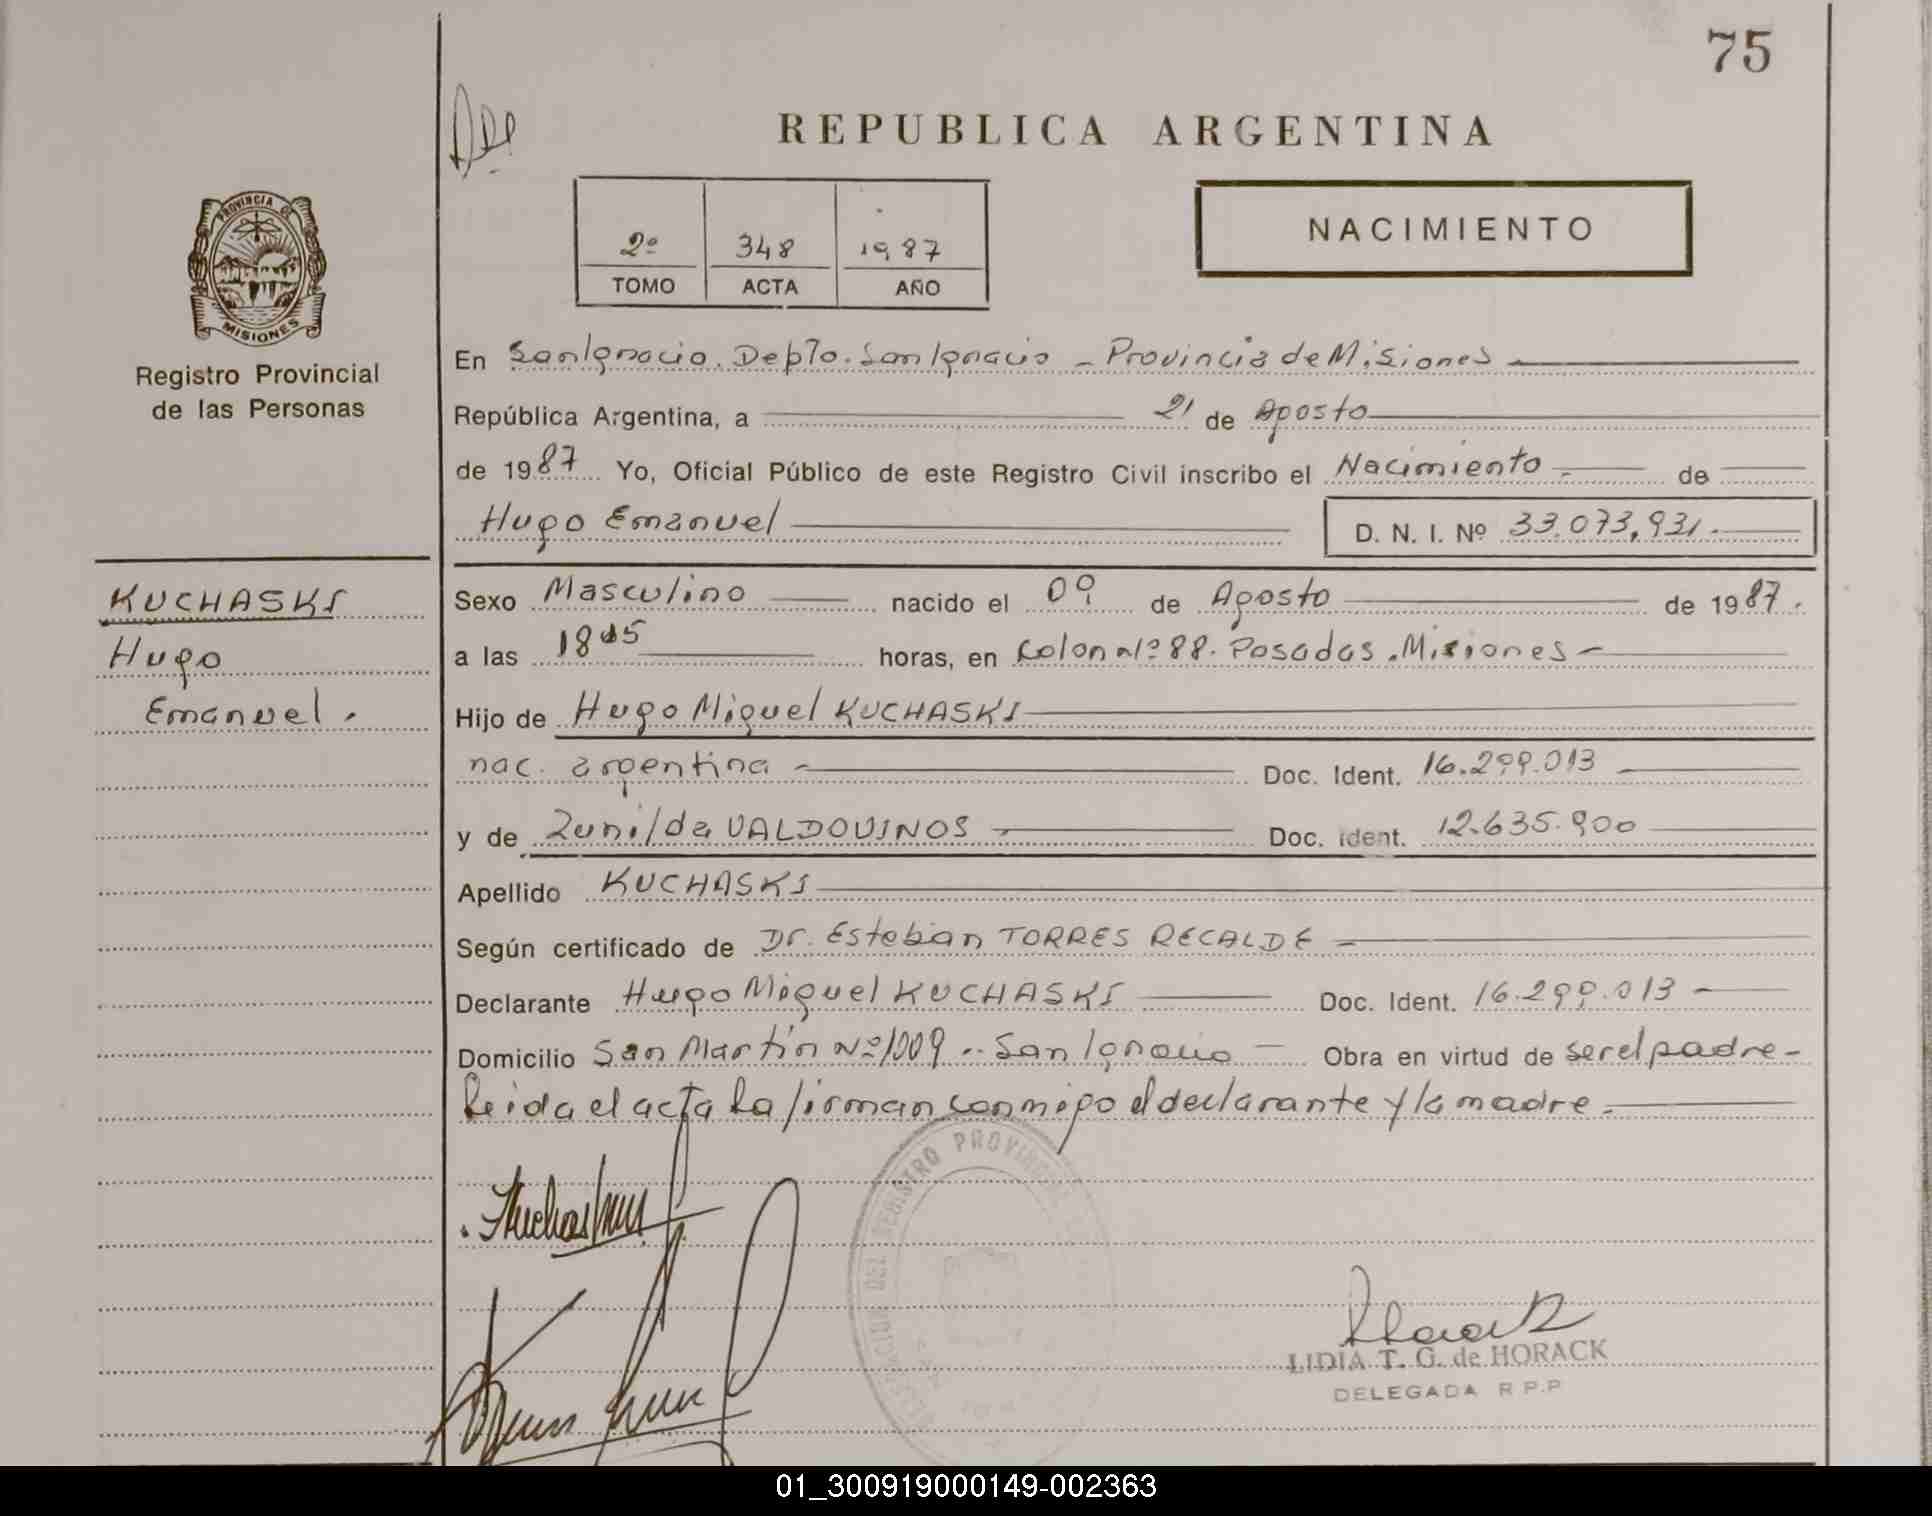 75
REPUBLICA ARGENTINA
NACIMIENTO
2º 348 1987
TOMO ACTA AÑO
PROVINCIA DE
MISIONES
Registro Provincial
de las Personas
En San Ignacio. Depto. San Ignacio - Provincia de Misiones
República Argentina, a 21 de Agosto
de 1987 Yo, Oficial Público de este Registro Civil inscribo el Nacimiento de
Hugo Emanuel D. N. I. Nº 33.073.931.
KUCHASKI
Hugo
Emanuel.
Sexo Masculino nacido el 09 de Agosto de 1987.
a las 1815 horas, en Colon Nº 88. Posadas. Misiones
Hijo de Hugo Miguel KUCHASKI
nac. argentina Doc. Ident. 16.299.013
y de Zunilda VALDOVINOS Doc. ident. 12.635.900
Apellido KUCHASKI
Según certificado de Dr. Esteban TORRES RECALDE
Declarante Hugo Miguel KUCHASKI Doc. Ident. 16.299.013
Domicilio San Martín Nº 1009 .. San Ignacio Obra en virtud de ser el padre -
Leida el acta la firman conmigo el declarante y la madre.
DEL REGISTRO PROVINCIAL
LIDIA T. G. de HORACK
DELEGADA R P.P
01_300919000149-002363